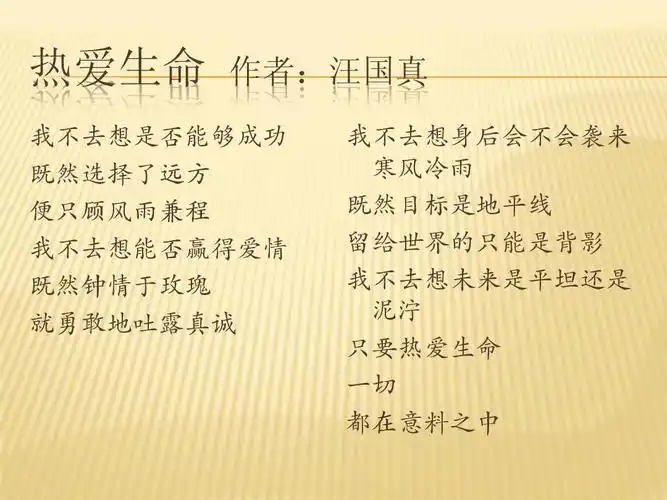 热爱生命 作者：汪国真
我不去想是否能够成功
既然选择了远方
便只顾风雨兼程
我不去想能否赢得爱情
既然钟情于玫瑰
就勇敢地吐露真诚
我不去想身后会不会袭来
寒风冷雨
既然目标是地平线
留给世界的只能是背影
我不去想未来是平坦还是
泥泞
只要热爱生命
一切
都在意料之中